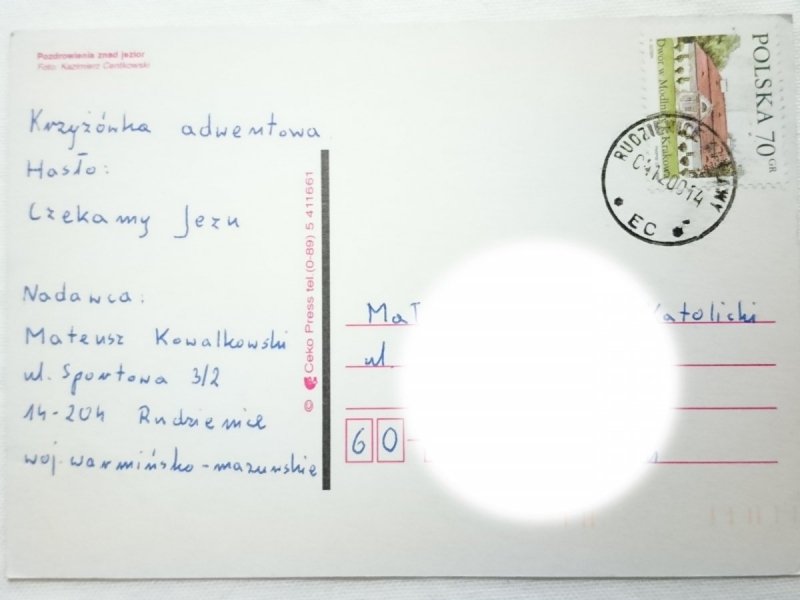 Pozdrowienia znad jezior
Foto: Kazimierz Centkowski
Krzyżówka adwentowa
Hasło:
Czekamy Jezu
Nadawca:
Mateusz Kowalkowski
ul. Sportowa 3/2
14-204 Rudzienice
woj. warmińsko-mazurskie
© Ceko Press tel. (0-89) 5 411661
POLSKA 70 GR
Dwór w Krakowa
RUDZIENICE
EC
Katolicki
ul.
60-